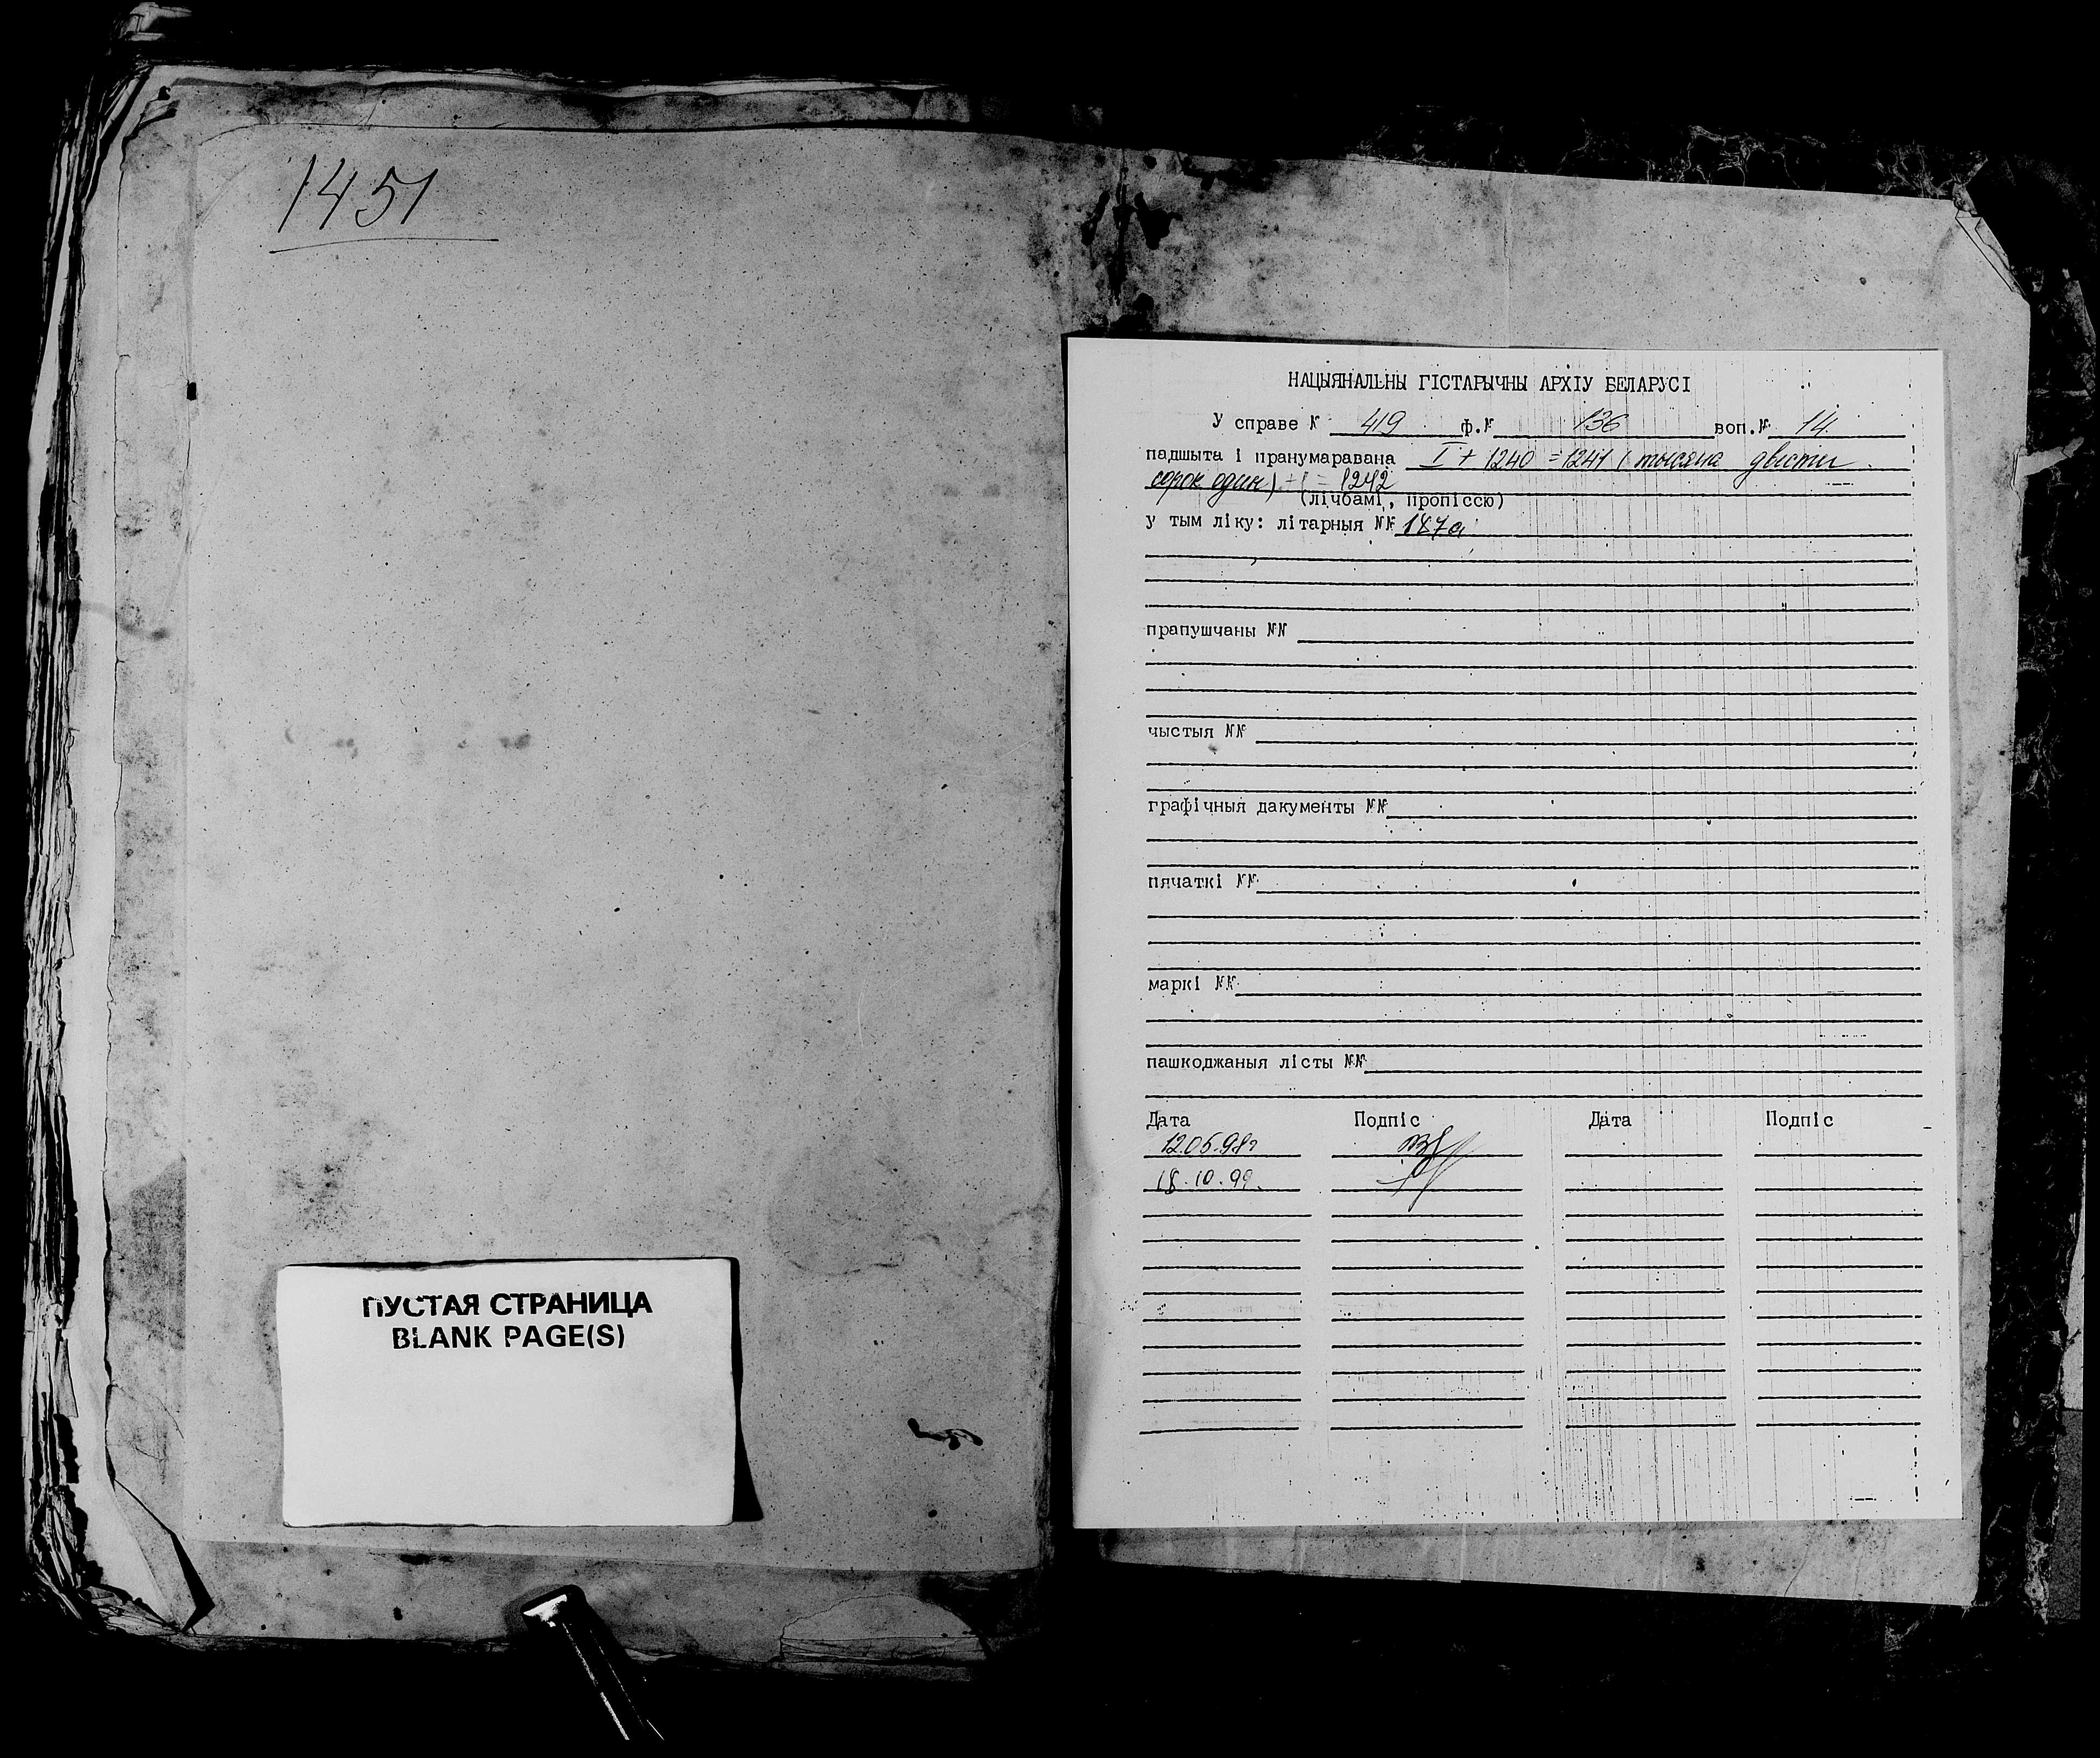 1451
ПУСТАЯ СТРАНИЦА
BLANK PAGE(S)
НАЦЫЯНАЛЬНЫ ГІСТАРЫЧНЫ АРХІУ БЕЛАРУСІ
У справе № 419 ф.№ 136 воп.№ 14
падшыта і пранумаравана I + 1240 = 1241 (тысяча двести
сорок один) + 1 = 1242
(лічбамі, пропіссю)
у тым ліку: літарныя №№ 187а
прапушчаны №№
чыстыя №№
графічныя дакументы №№
пячаткі №№
маркі №№
пашкоджаныя лісты №№
Дата Подпіс Дата Подпіс
12.05.98г
18.10.99.